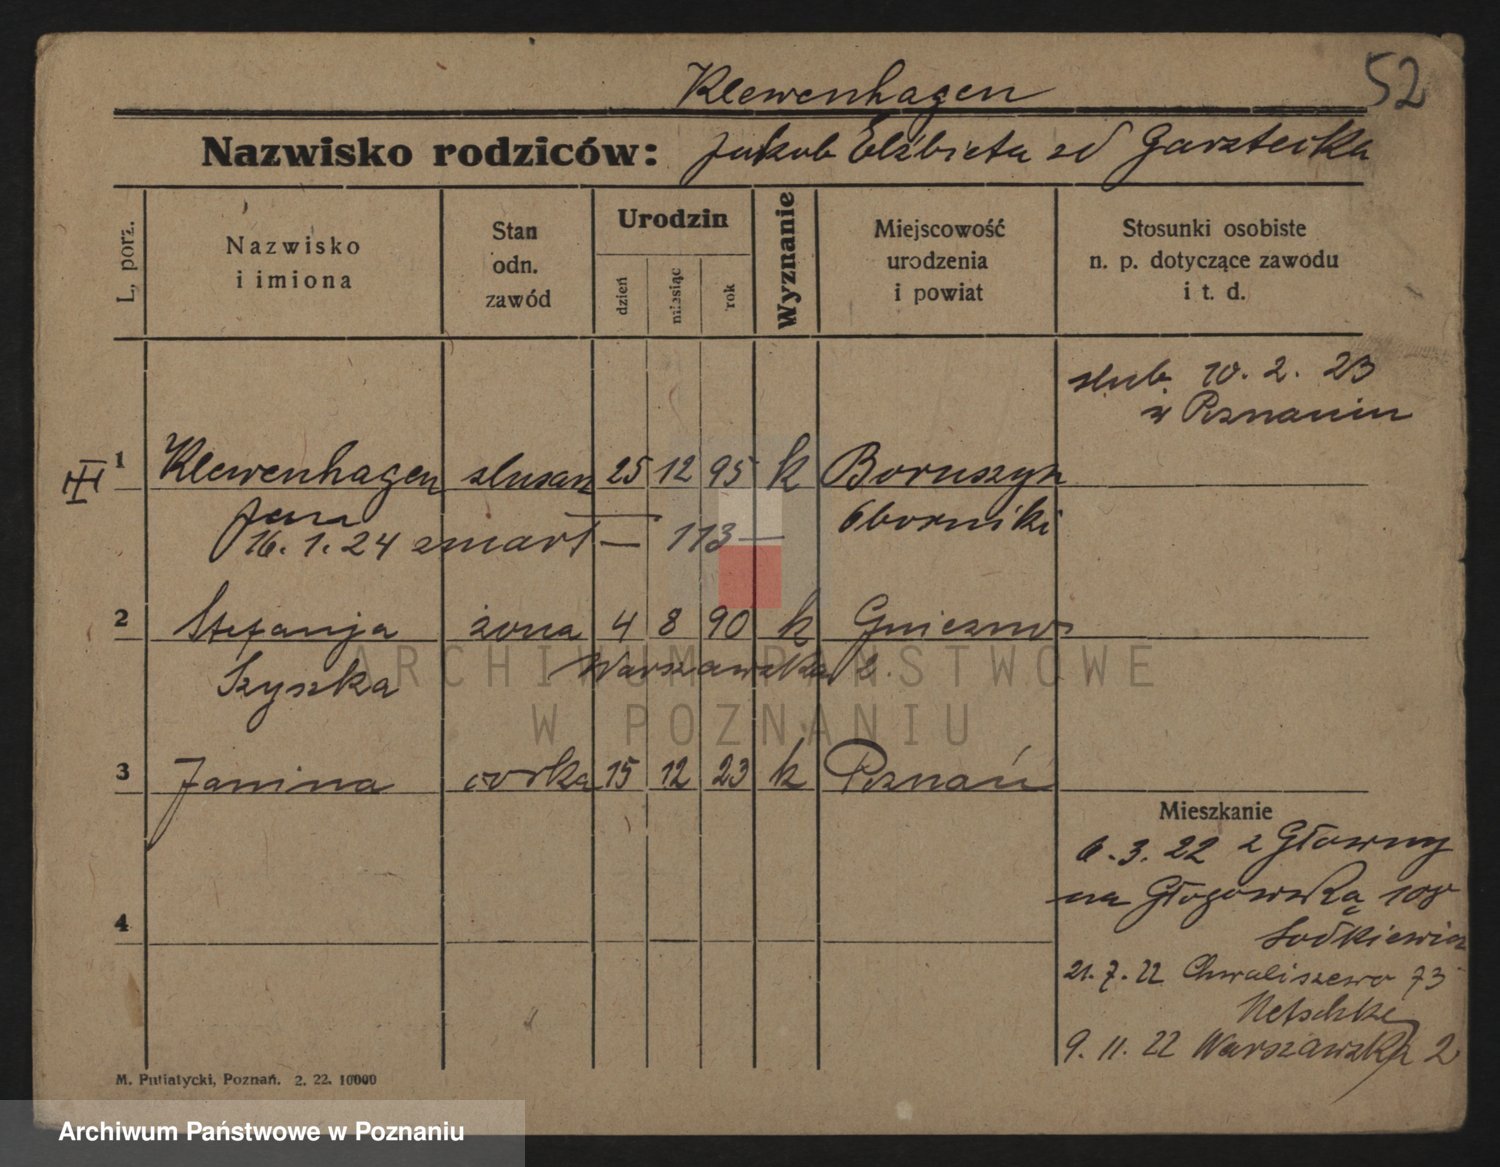 52
Klewenhagen
Nazwisko rodziców: Jakob Elżbieta zd Garstecka
L. porz.
Nazwisko
i imiona
Stan
odn.
zawód
Urodzin
dzień
miesiąc
rok
Wyznanie
Miejscowość
urodzenia
i powiat
Stosunki osobiste
n. p. dotyczące zawodu
i t. d.
slub 10. 2. 23
w Poznaniu
1 Klewenhagen slusarz 25 12 95 k Boruszyn
Oborniki
16. 1. 24 zmarł — 113 —
2 Stefanja żona 4 8 90 k Gniezno
Szyszka Warszawska 2.
3 Janina corka 15 12 23 k Poznań
Mieszkanie
6. 3. 22 z Głowny
na Głogowską 108
21. 7. 22 Chwaliszewo 73
9. 11. 22 Warszawska 2
4
M. Putiatycki, Poznań. 2. 22. 10000
ARCHIWUM PAŃSTWOWE
W POZNANIU
Archiwum Państwowe w Poznaniu